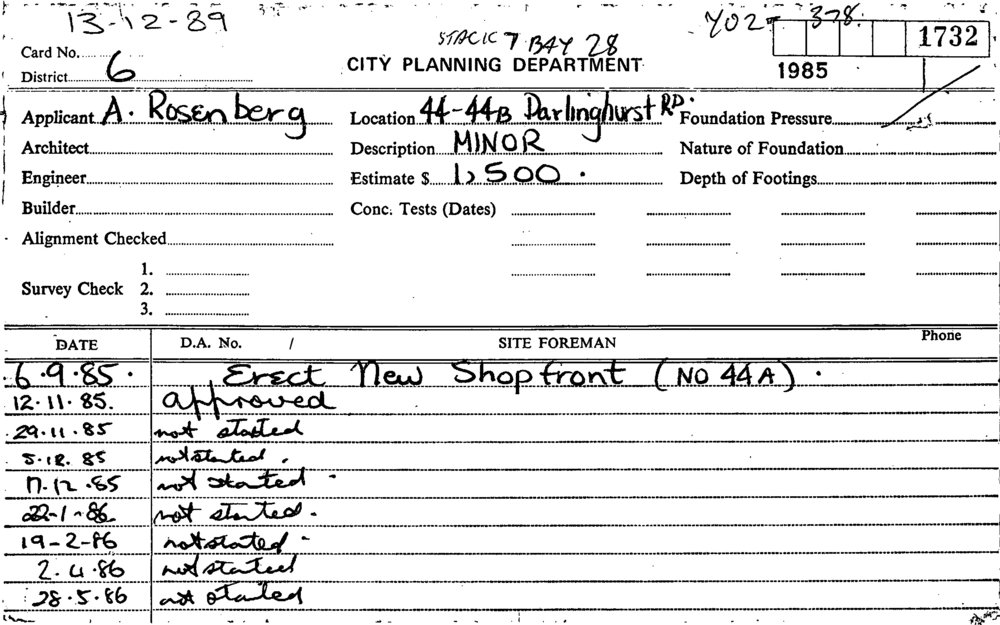 13-12-89
STACK 7 BAY 28
Y02-378.
Card No.
1732
District 6
CITY PLANNING DEPARTMENT
1985
Applicant A. Rosenberg
Location 44-44B Darlinghurst RD.
Foundation Pressure
Architect
Description MINOR
Nature of Foundation
Engineer
Estimate $ 1,500.
Depth of Footings
Builder
Conc. Tests (Dates)
Alignment Checked
1.
Survey Check 2.
3.
DATE D.A. No. / SITE FOREMAN Phone
6.9.85. Erect New Shopfront (NO 44A).
12.11.85. approved
29.11.85 not started
5.12.85 not started.
17.12.85 not started -
22-1-86 not started.
19-2-86 not started -
2.4.86 not started
28.5.86 not started